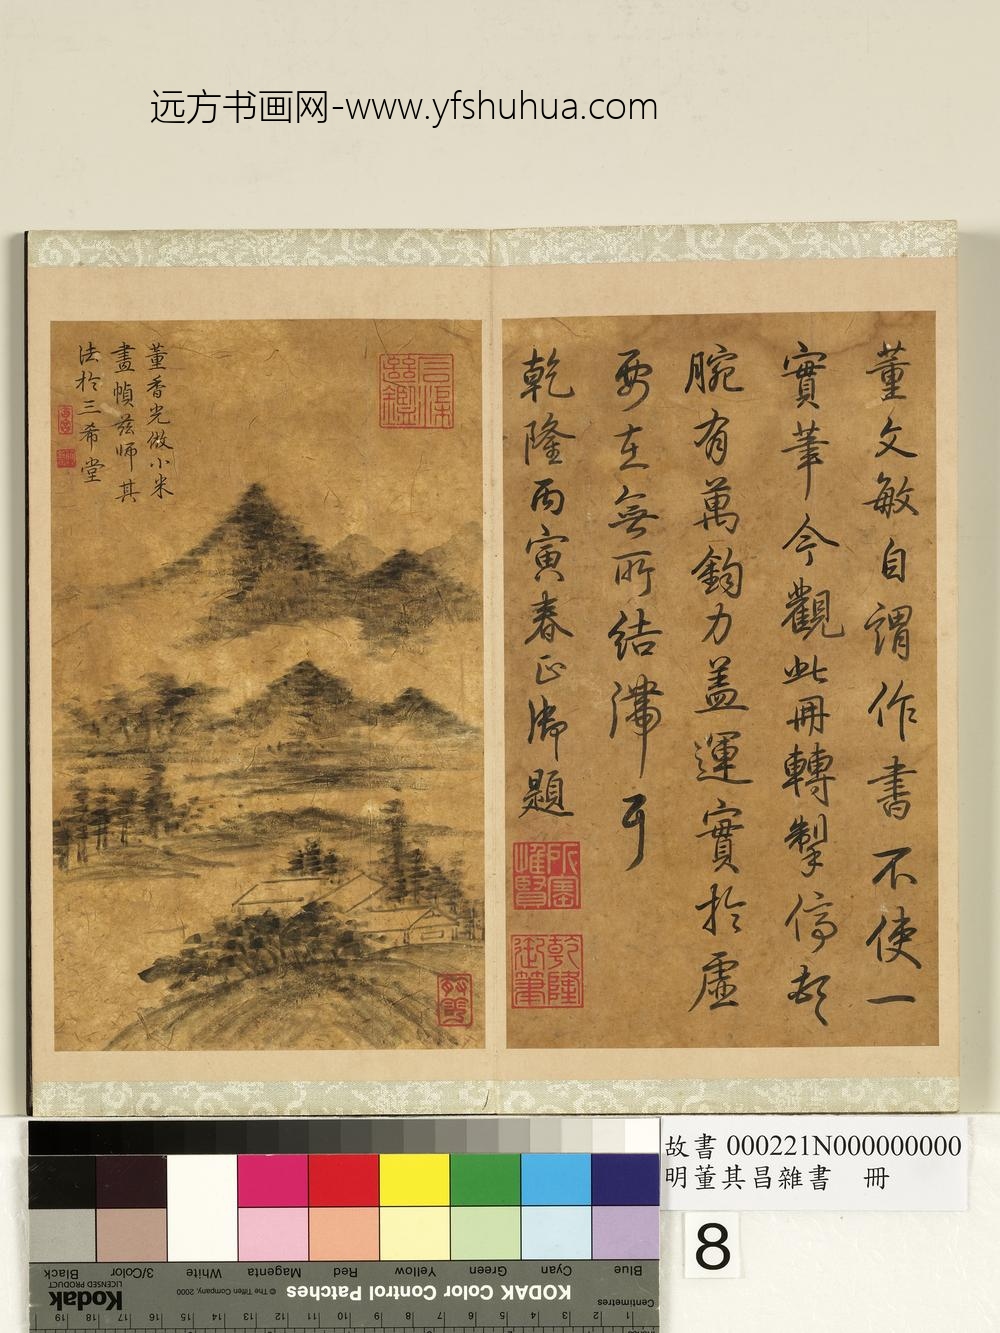 远方书画网-www.yfshuhua.com
董文敏自謂作書不使一
實筆今觀此冊轉掣停頓
腕有萬鈞力蓋運實於虛
要在無所結滯耳
乾隆丙寅春正御題
所寶
惟賢
乾隆
御筆
董香光倣小米
畫幀茲師其
法於三希堂
故書 000221N000000000
明董其昌雜書 冊
8
Blue
Cyan
Green
Yellow
Red
Magenta
White
3/Color
Black
KODAK Color Control Patches
© The Tiffen Company, 2000
Kodak
LICENSED PRODUCT
Centimetres
1 2 3 4 5 6 7 8 9 10 11 12 13 14 15 16 17 18 19